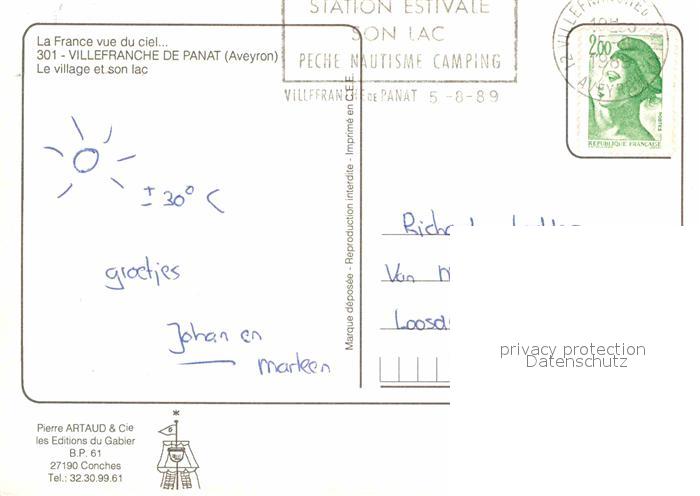 STATION ESTIVALE
SON LAC
PECHE NAUTISME CAMPING
VILLEFRANCHE DE PANAT 5-8-89
12 VILLEFRANCHE
AVEYRON
2,00
POSTES
REPUBLIQUE FRANÇAISE
La France vue du ciel...
301 - VILLEFRANCHE DE PANAT (Aveyron)
Le village et son lac
± 30° <
groetjes
Johan en
Marleen
Marque déposée - Reproduction interdite - Imprimé en C.E.E.
Van
privacy protection
Datenschutz
Pierre ARTAUD & Cie
les Editions du Gabier
B.P. 61
27190 Conches
Tel.: 32.30.99.61